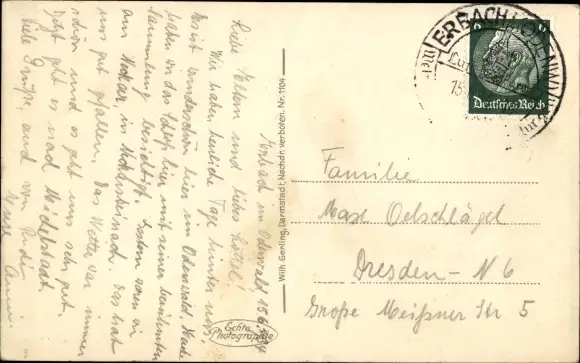 Erbach im Odenwald 15.6.34
Liebe Eltern und liebes Lottel.
Wir haben herrliche Tage hinter uns.
ist wunderschön hier im Odenwald. Heute
haben wir das Schloß hier mit seiner berühmten
Sammlung besichtigt. Gestern waren wir
am Neckar, in Neckarsteinach. Das hat
uns gut gefallen. Das Wetter war immer
schön und es geht uns sehr gut.
Jetzt geht es nach Michelstadt
Viele Grüße, auch von
Eure Anni
Wilh. Gerling, Darmstadt, Nachdr. verboten. Nr. 1104
Echte
Photographie
ERBACH (ODENWALD)
Deutsches Reich
Familie
Max Oelschlägel
Dresden-N 6
Große Meißner Str 5